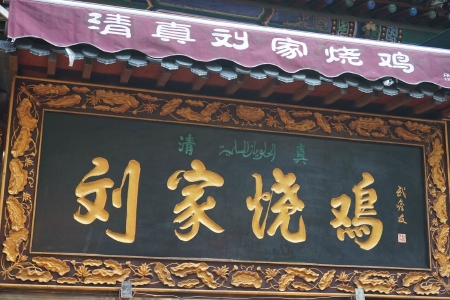 清真刘家烧鸡
清 真
刘家烧鸡